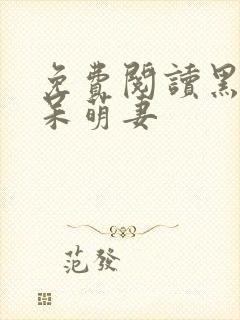 免費閱讀黑
呆萌妻
范發